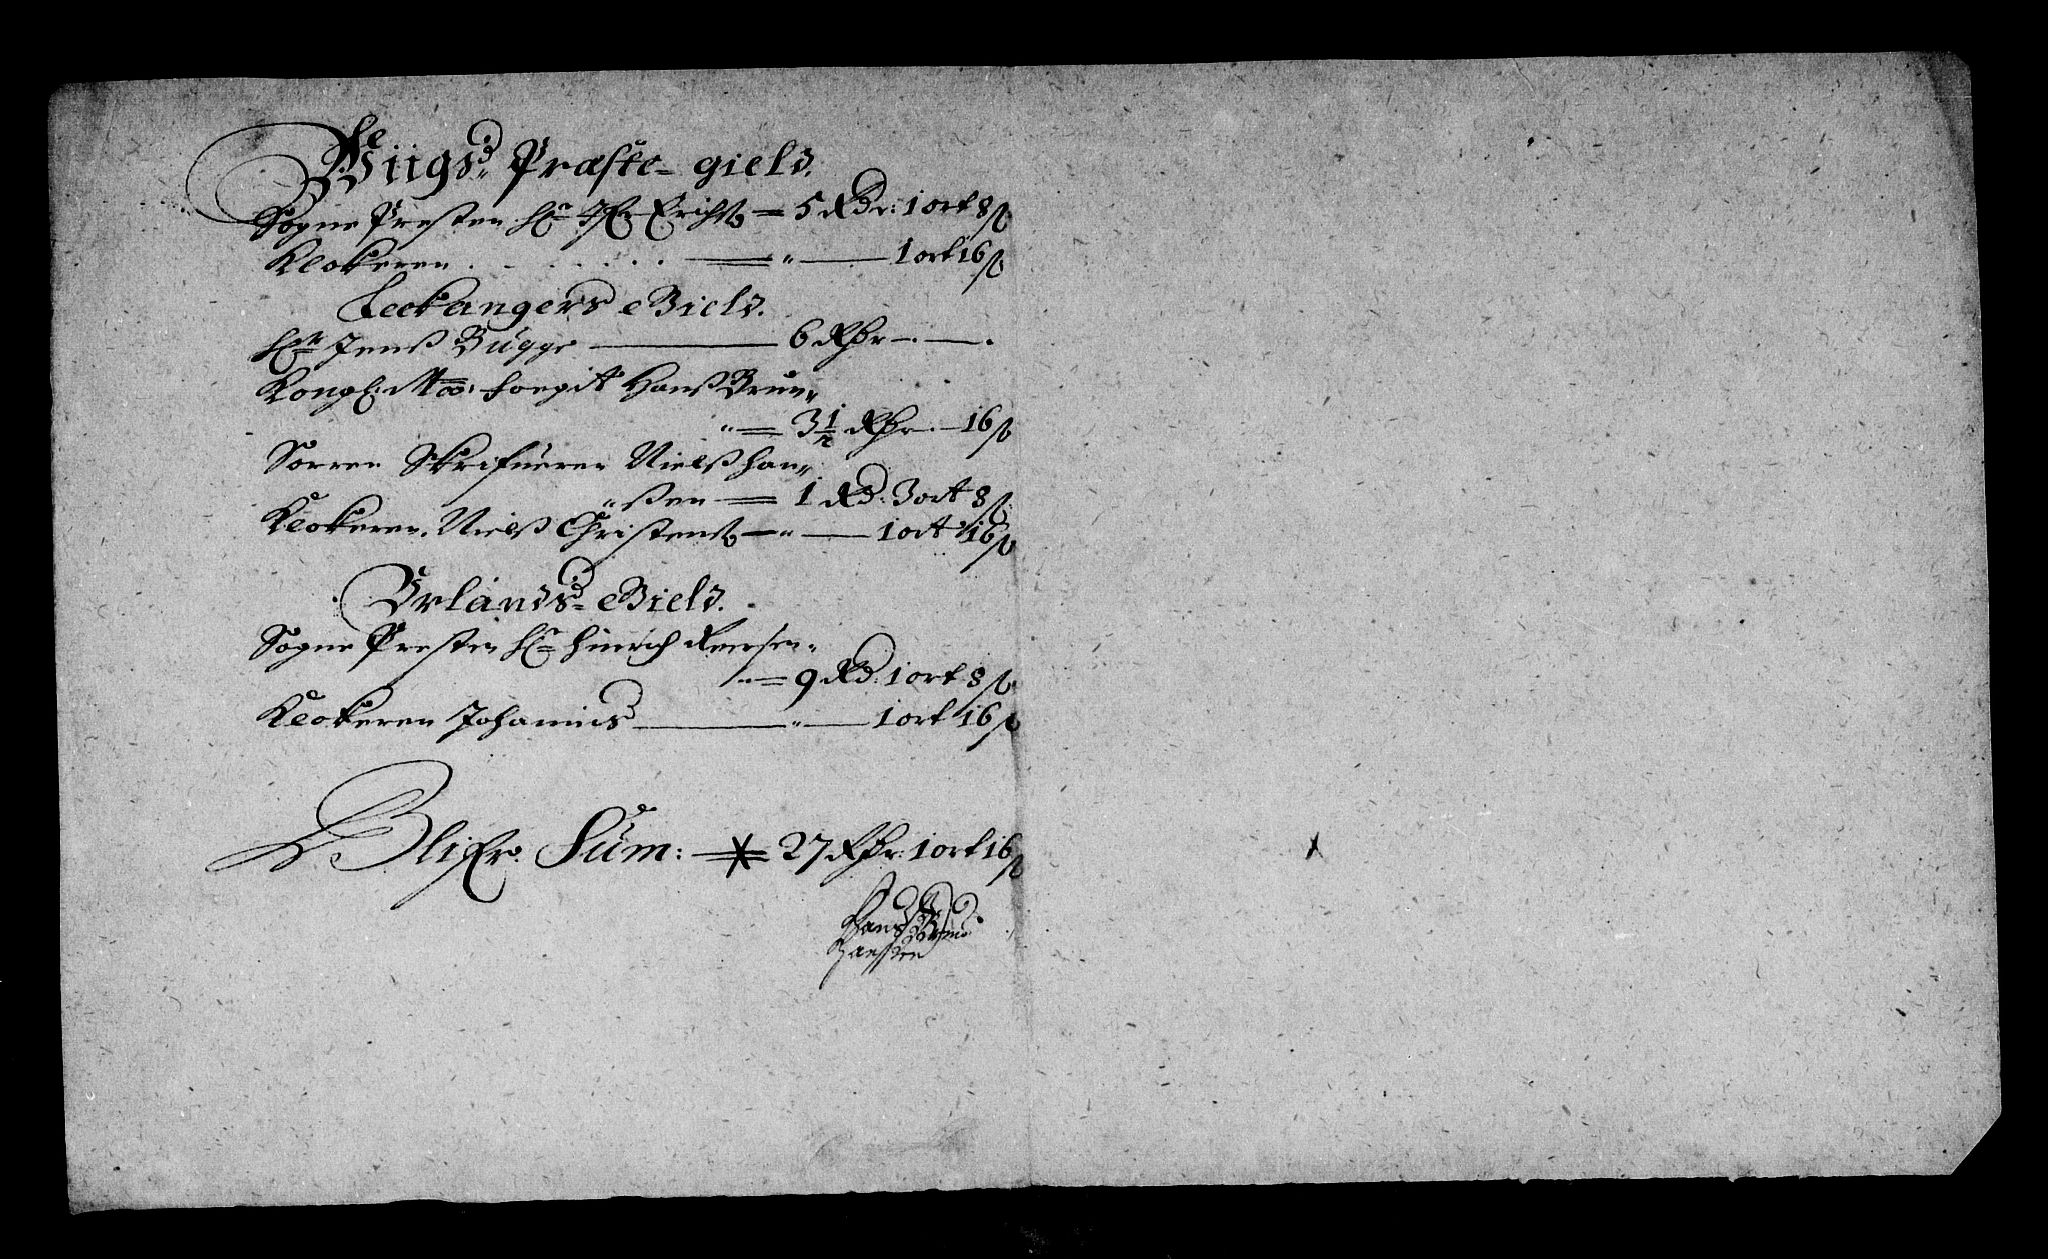 Wiigs Præste-gield.
Sogne Presten Hr Ifr Erichß = 5 Rdr: 1 ort 8 ß
Klokeren . . . . . . = " — 1 ort 16 ß
Leckangers Gield.
Hr Jenß Bugge — 6 Rdr — . — .
Kongl: Maÿ: foegit Hanß Brun„
" = 3 1/2 Rdr. — 16 ß
Sorren Skrifueren Nielß Han„
"ßen = 1 Rd: 3 ort 8 ß
Klokeren. Nielß Christenß — " — 1 ort 16 ß
Urlands- Gield.
Sogne Presten Hr Hinrich
" = 9 Rd: 1 ort 8 ß
Klokeren Johannis — " — 1 ort 16 ß
Blifr. Sum: = 27 Rdr: 1 ort 16 ß
Hans Brun
Hanssen